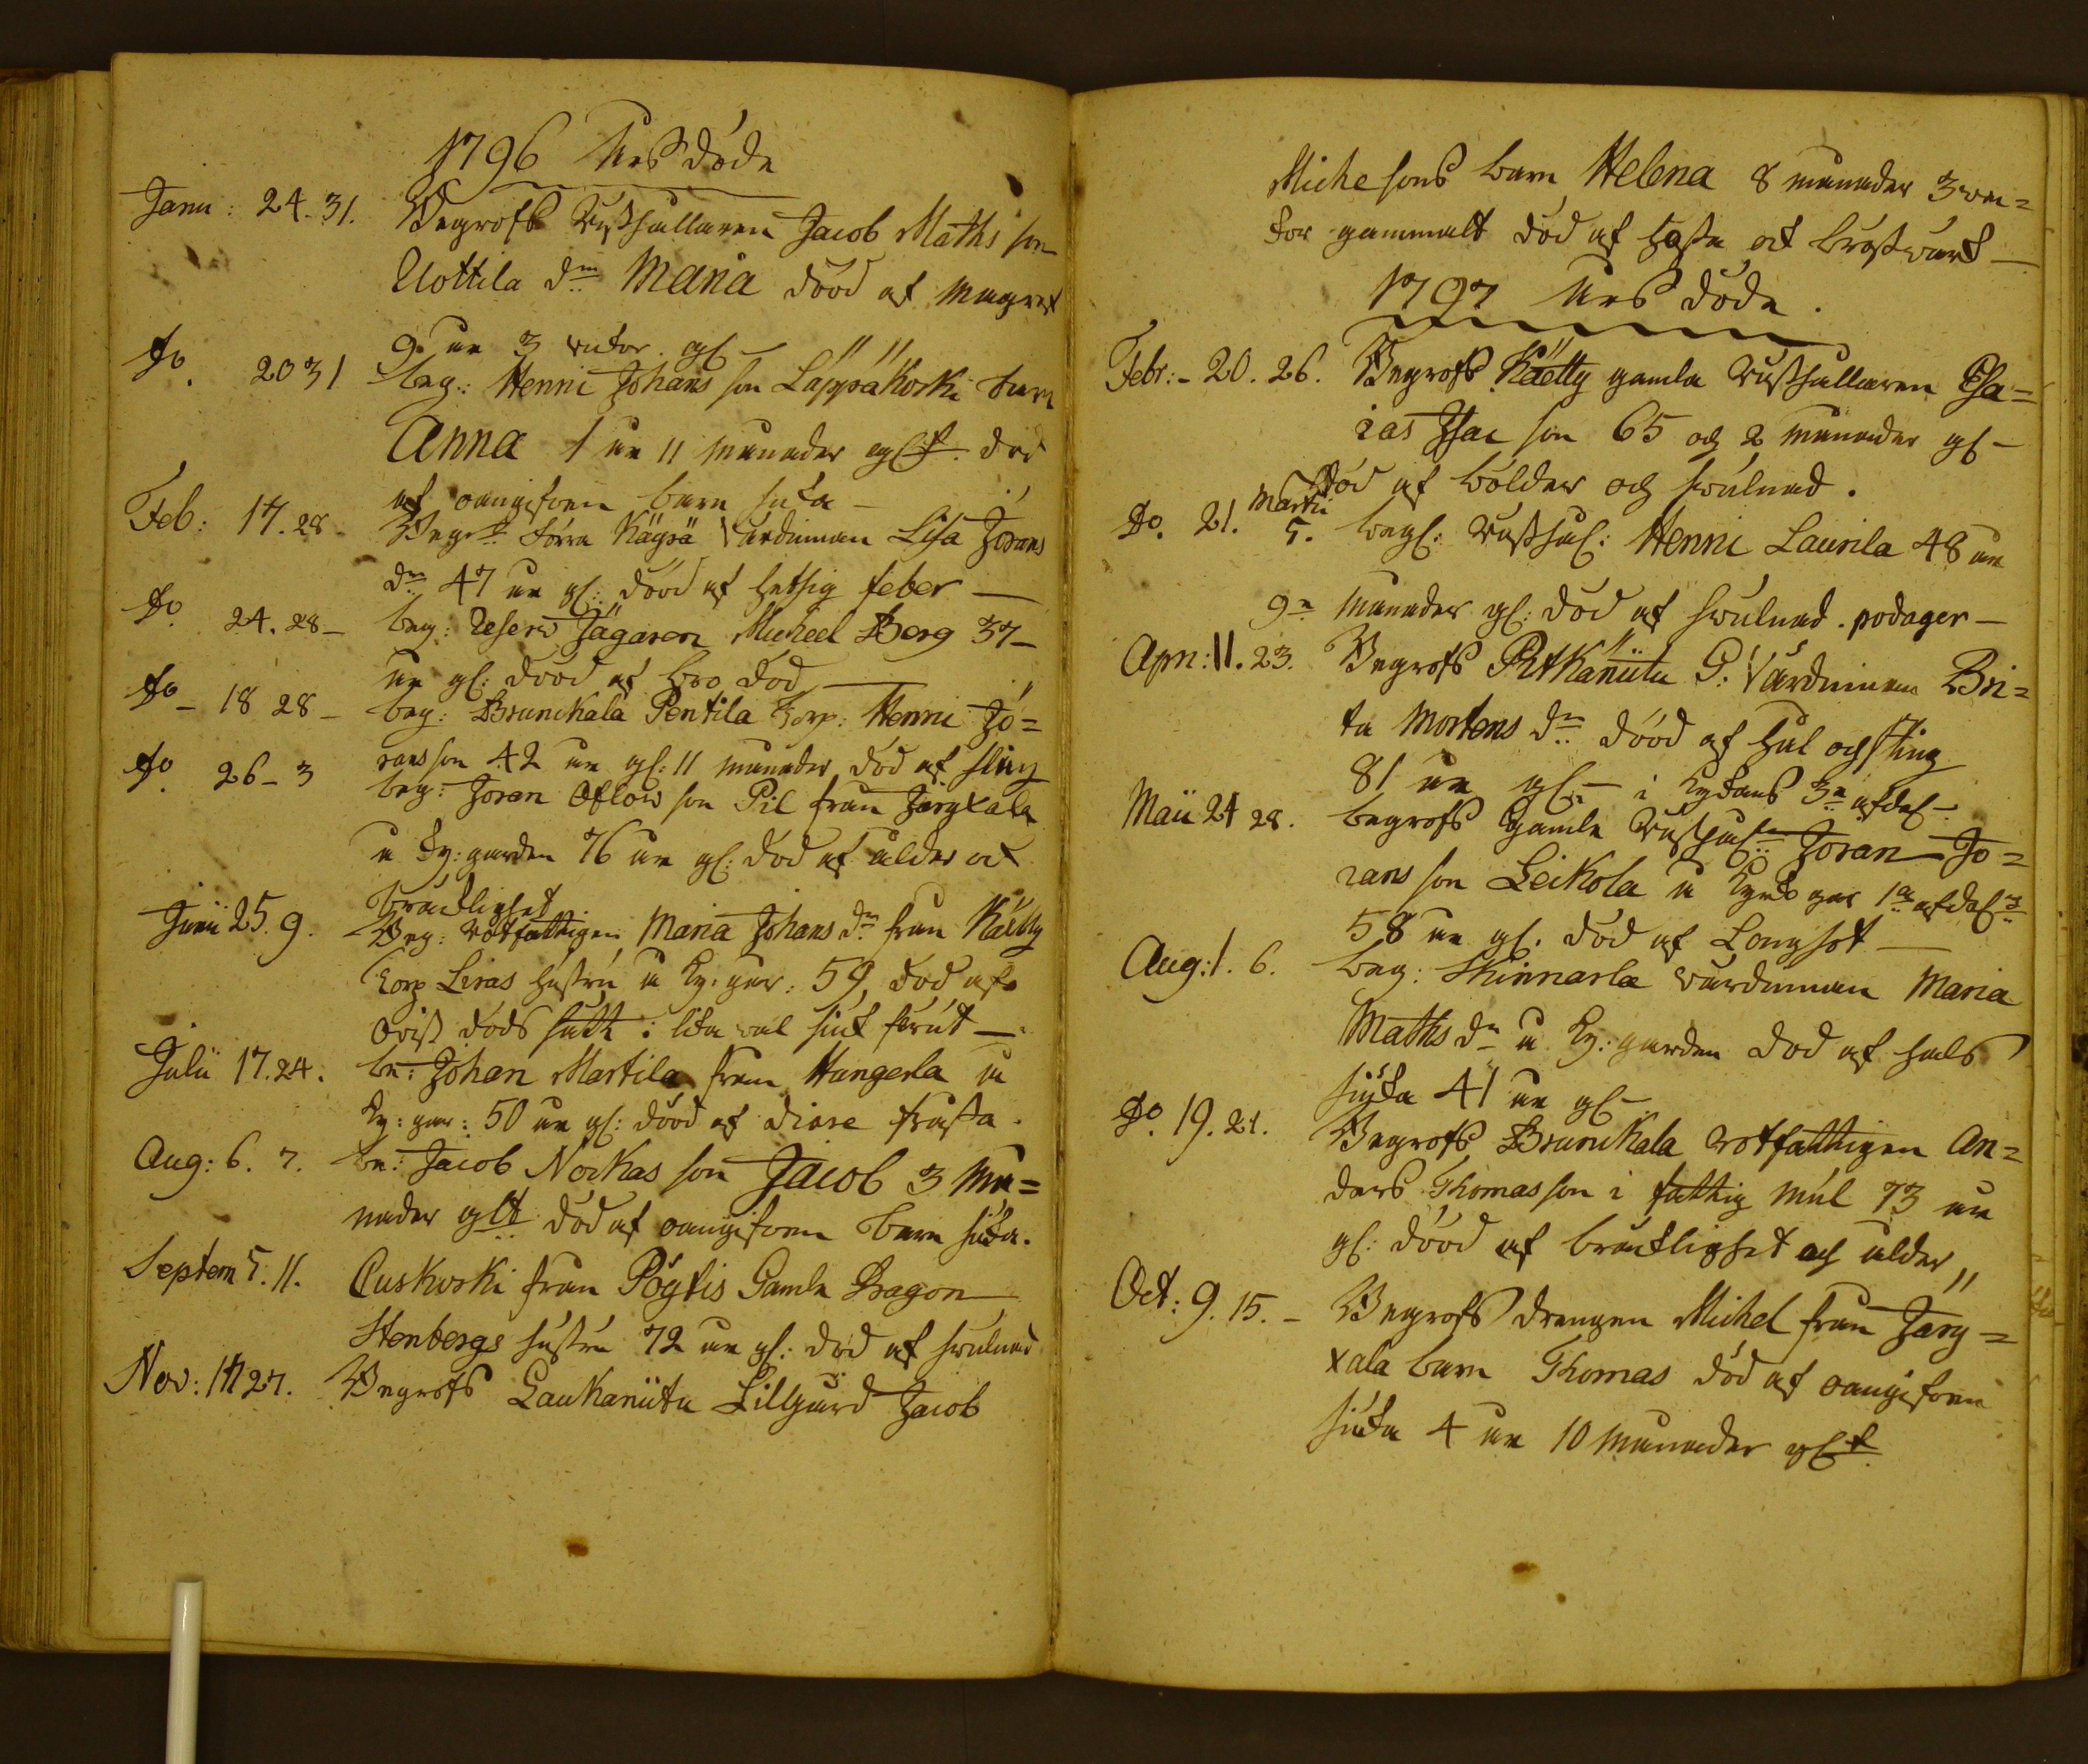 1796 Åhrs döde
Janu: 24-31. Begrofs Rusthållaren Jacob Maths son
Uottila dr Maria dööd af magref
9 år 3 vickor gl
do. 20 31 beg: Henric Johans son Lappäkoski barn
Anna 1 år 11 månader glt. död
af oangifven barn siuka
Feb: 17. 28. Begr: Torra Käyrä Värdinnan Lisa Jörans
dr 47 år gl: dööd af hetsig feber
do 24. 28 beg: Reserv Jägaren Micheel Berg 37
år gl: dööd af död
do 18 28 beg: Brunikala Pentila Torp: Henric Jö=
rans son 42 år gl: 11 månader död af slag
do 26-3 beg: Joran Oflow son Pil från Järyxäla
å Ky:garden 76 år gl: död af ålder och
bräcklighet
Junii 25. 9. Beg: Rotfattigen Maria Johans dr från Kätty
Torp Liras hustru å Ky: gar: 59 död af
oviss döds sätt: siuk förut
Julii 17. 24. be: Johan Martila från Hangerla å
Ky: gar: 50 år gl: dööd af diare
Aug: 6. 7. be: Jacob Norkas son Jacob 3 må=
nader glt död af oangifven barn siuka.
Septem 5. 11. Cuskoski från Pöytis Gamla Dragon
Stenbergs hustru 72 år gl: död af svulnad
Nov: 17 27. Begrofs Laukaniitu Lillgård Jacob
Michelsons barn Helena 8 månader 3 vec=
kor gammalt död af hosta och bröstvärk
1797 Åhrs döde.
Febr: 20. 26. Begrofs Käetty gamla Rusthållaren Esa=
ias Isac son 65 och 2 månader gl
död af bölder och svulnad.
do. 21. Martii 5. begr: Rusthål: Henric Laurila 48 år
9 månader gl: död af svulnad. podager
Apri: 11. 23. Begrofs Pitkäniitu G: Värdinnan Bri=
ta Mortens dr dööd af hål och sting
81 år gl i Kyrkans 3 afdel
Maii 24 28. begrofs Gamla Rusthål: Joran Jo=
rans son Leikola å Kyrko gar 1a afdel
58 år gl. död af Longsot
Aug: 1. 6. beg: Skinnarla värdinnan Maria
Maths dr å Ky: garden död af hals
siuka 41 år gl
do. 19. 21. Begrofs Brunikala rotfattigen An=
ders Thomas son i fattig mål 73 år
gl: dööd af bräcklighet och ålder
Oct: 9. 15. Begrofs drengen Michel från Järy=
xälä barn Thomas död af oangifven
siuka 4 år 10 månader glt